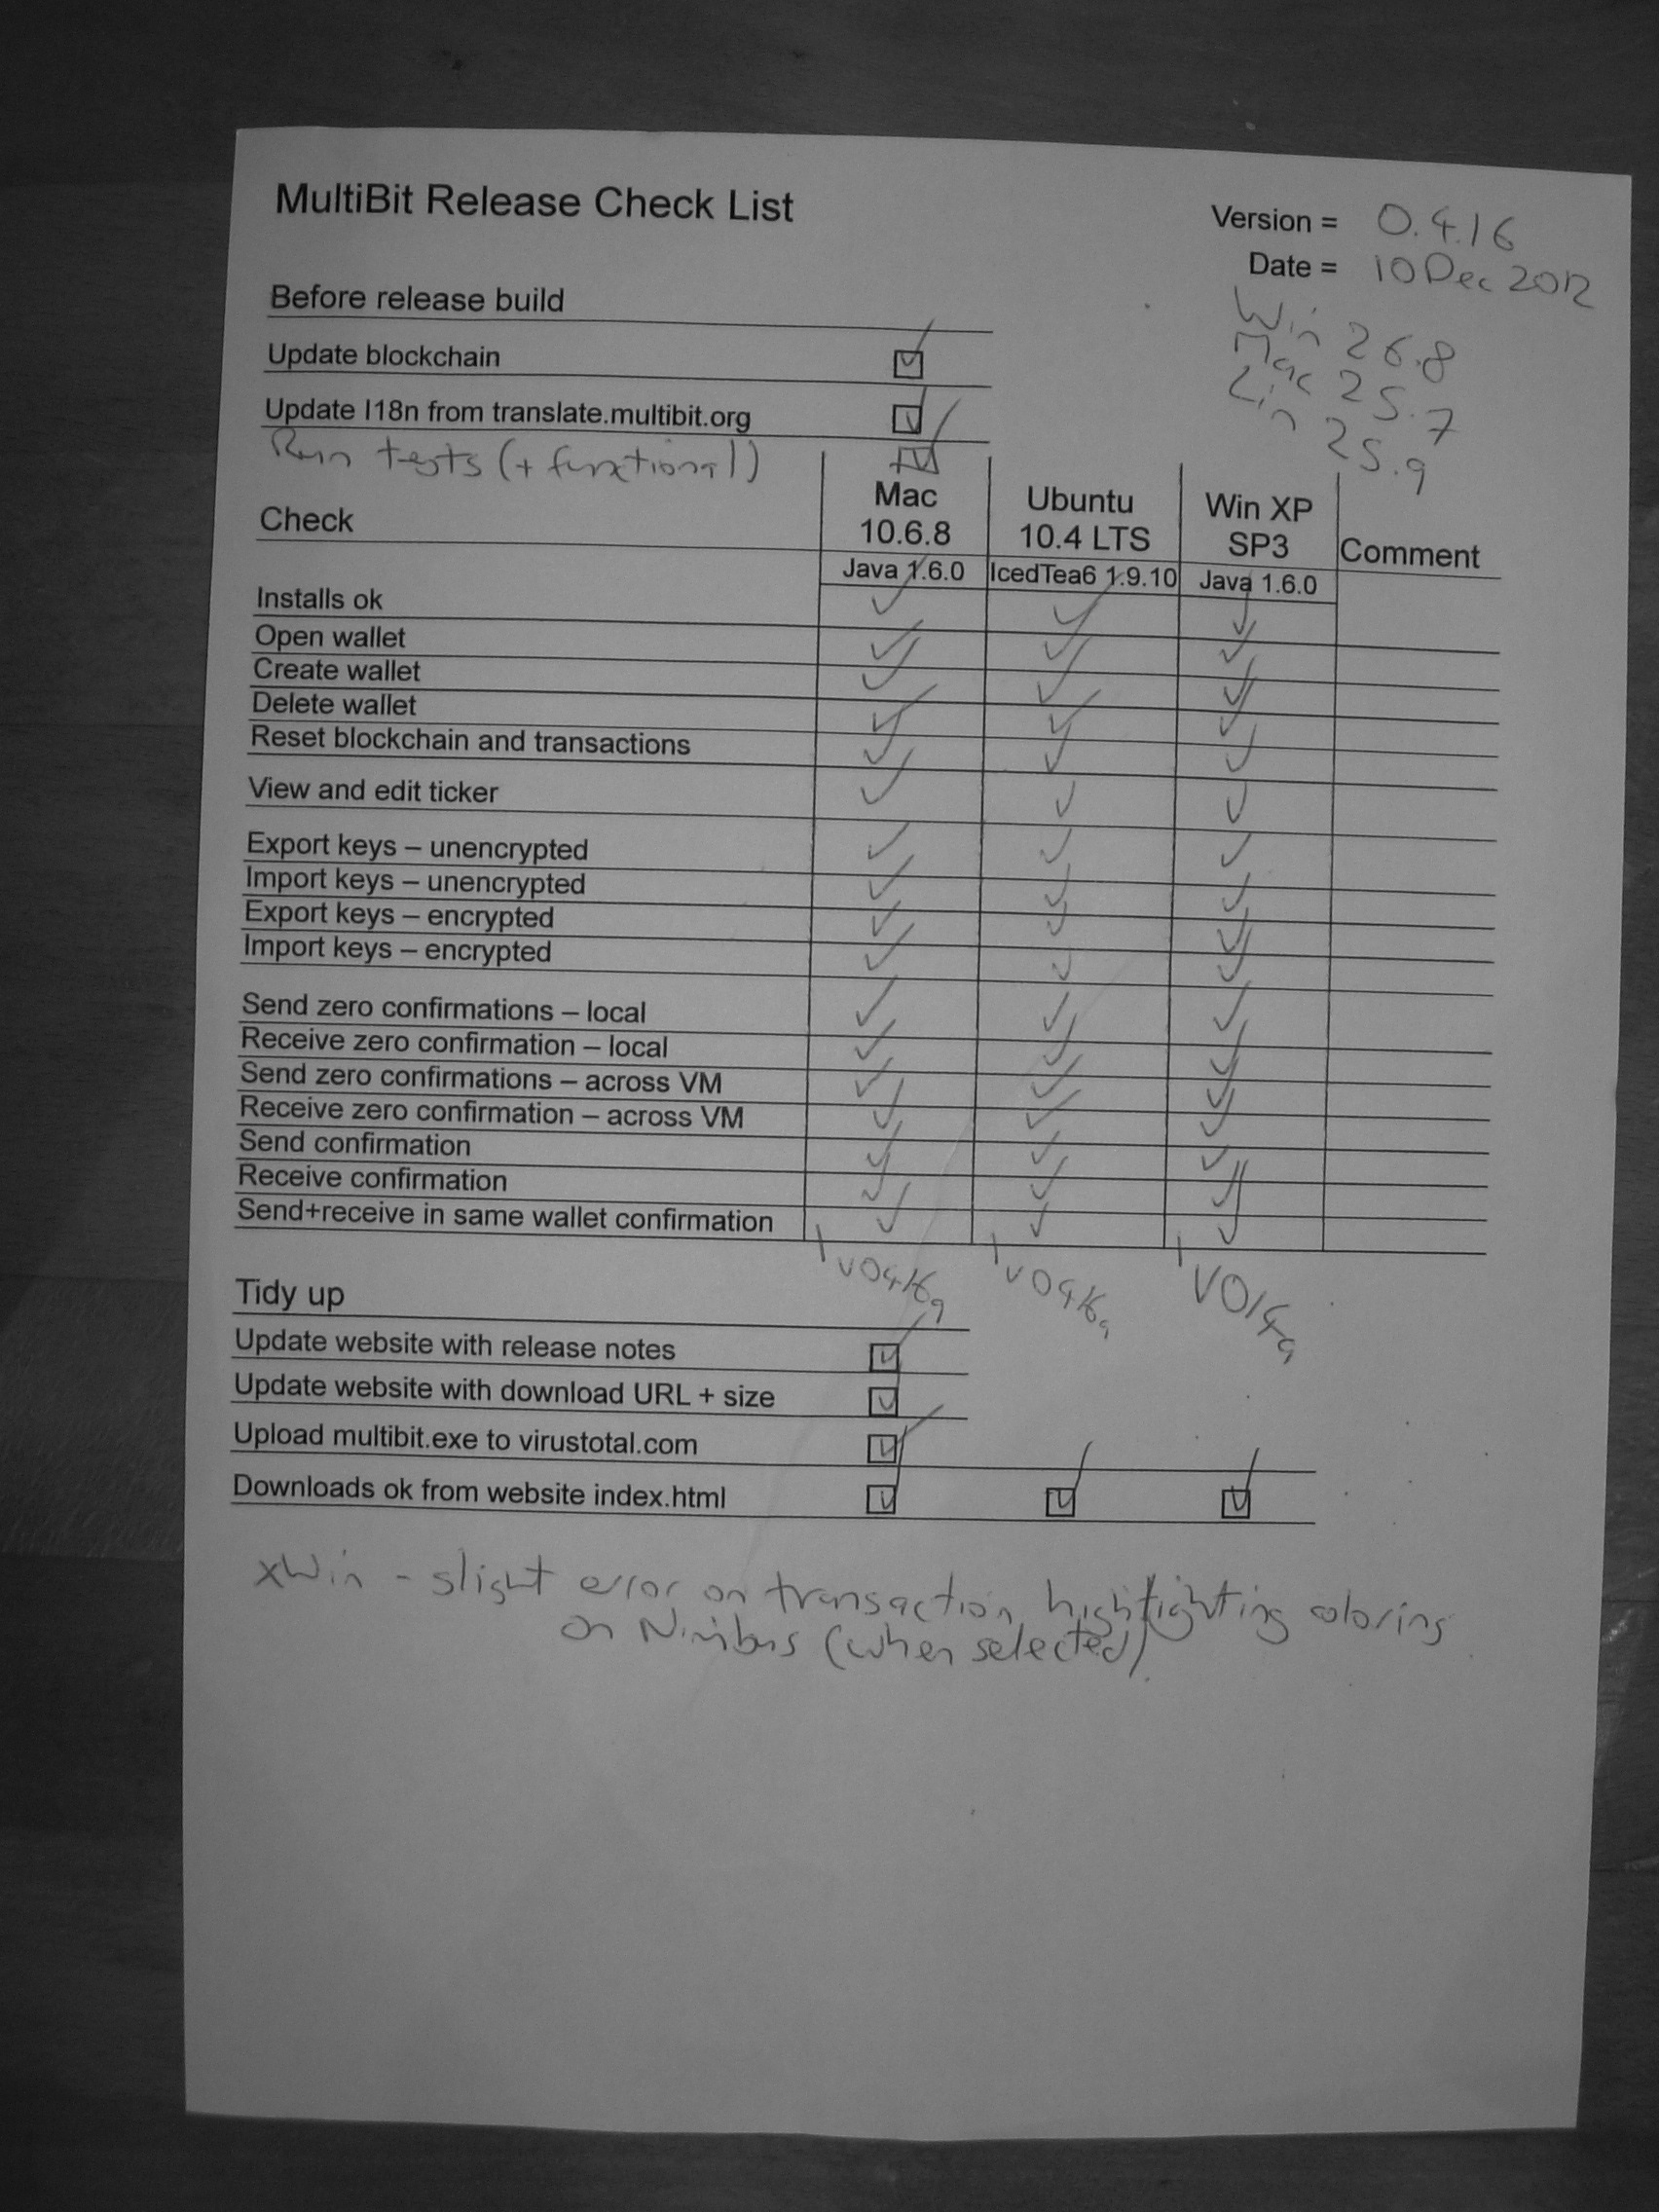 MultiBit Release Check List
Version = 0.4.16
Date = 10 Dec 2012
Win 26.8
Mac 25.7
Lin 25.9
Before release build
Update blockchain
Update I18n from translate.multibit.org
Run tests (+ functional)
Check Mac 10.6.8 Ubuntu 10.4 LTS Win XP SP3 Comment
Java 1.6.0 IcedTea6 1.9.10 Java 1.6.0
Installs ok ✓ ✓ ✓
Open wallet ✓ ✓ ✓
Create wallet ✓ ✓ ✓
Delete wallet ✓ ✓ ✓
Reset blockchain and transactions ✓ ✓ ✓
View and edit ticker ✓ ✓ ✓
Export keys – unencrypted ✓ ✓ ✓
Import keys – unencrypted ✓ ✓ ✓
Export keys – encrypted ✓ ✓ ✓
Import keys – encrypted ✓ ✓ ✓
Send zero confirmations – local ✓ ✓ ✓
Receive zero confirmation – local ✓ ✓ ✓
Send zero confirmations – across VM ✓ ✓ ✓
Receive zero confirmation – across VM ✓ ✓ ✓
Send confirmation ✓ ✓ ✓
Receive confirmation ✓ ✓ ✓
Send+receive in same wallet confirmation ✓ ✓ ✓
Tidy up
Update website with release notes
Update website with download URL + size
Upload multibit.exe to virustotal.com
Downloads ok from website index.html
xWin - slight error on transaction highlighting coloring
on Nimbus (when selected)